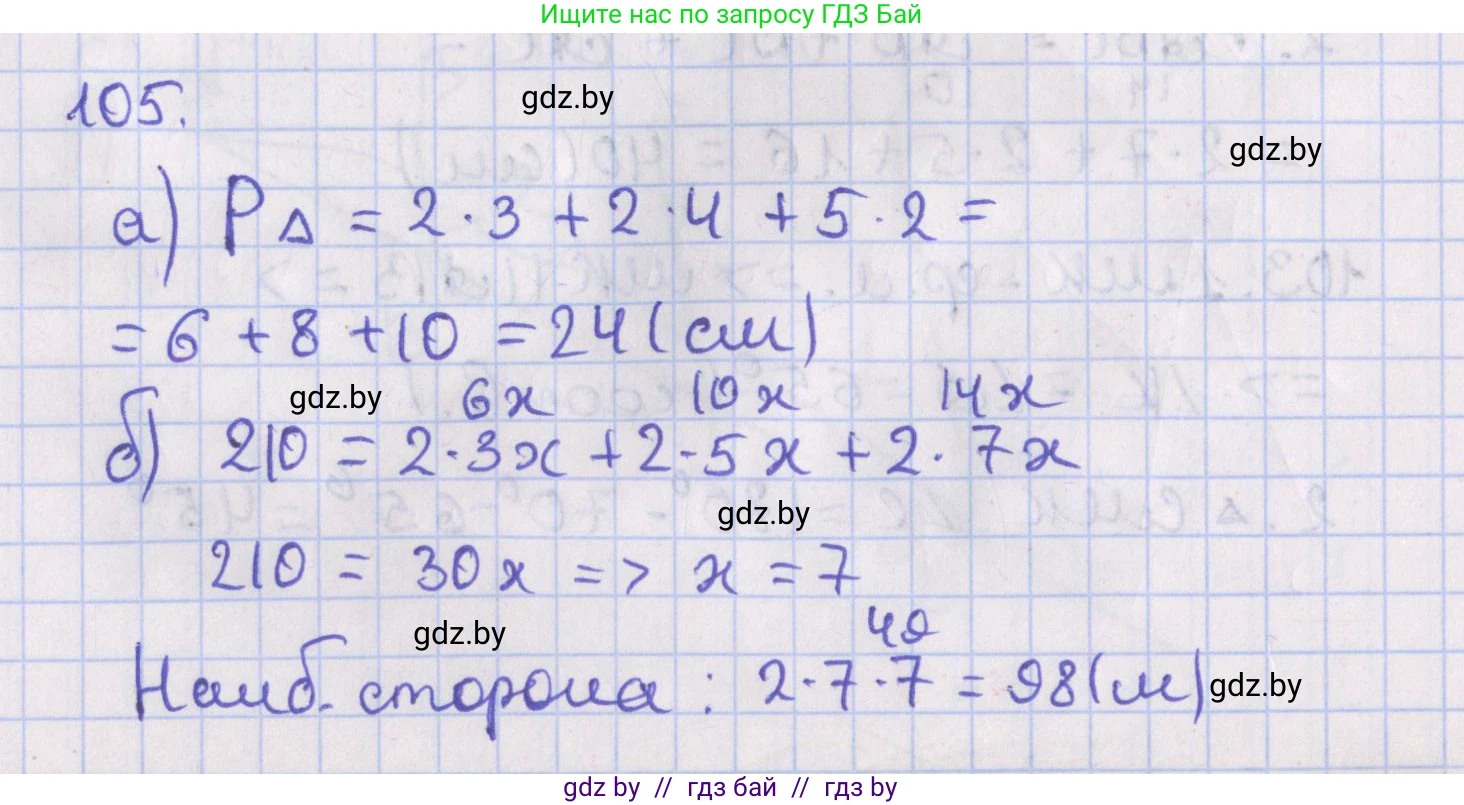 Ищите нас по запросу ГДЗ Бай
105.
gdz.by
gdz.by
а) P△ = 2·3 + 2·4 + 5·2 =
= 6 + 8 + 10 = 24 (см)
gdz.by
6x 10x 14x
б) 210 = 2·3x + 2·5x + 2·7x
gdz.by
210 = 30x => x = 7
gdz.by
49
Наиб. сторона: 2·7·7 = 98 (м)
gdz.by
gdz by // гдз бай // гдз by